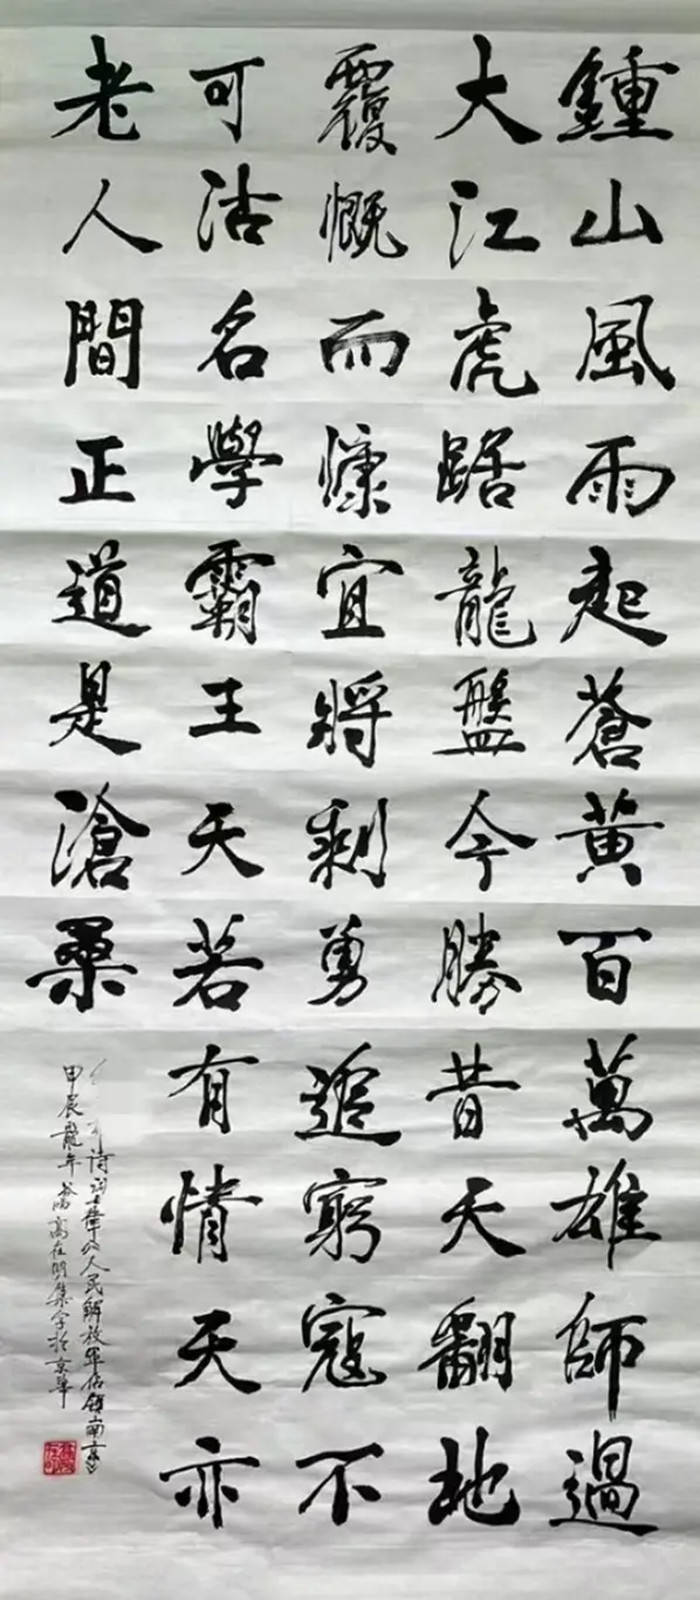 鍾山風雨起蒼黃百萬雄師過
大江虎踞龍盤今勝昔天翻地
覆慨而慷宜將剩勇追窮寇不
可沽名學霸王天若有情天亦
老人間正道是滄桑
詩詞七律人民解放軍佔領南京
甲辰龍年 高在明集字於京華